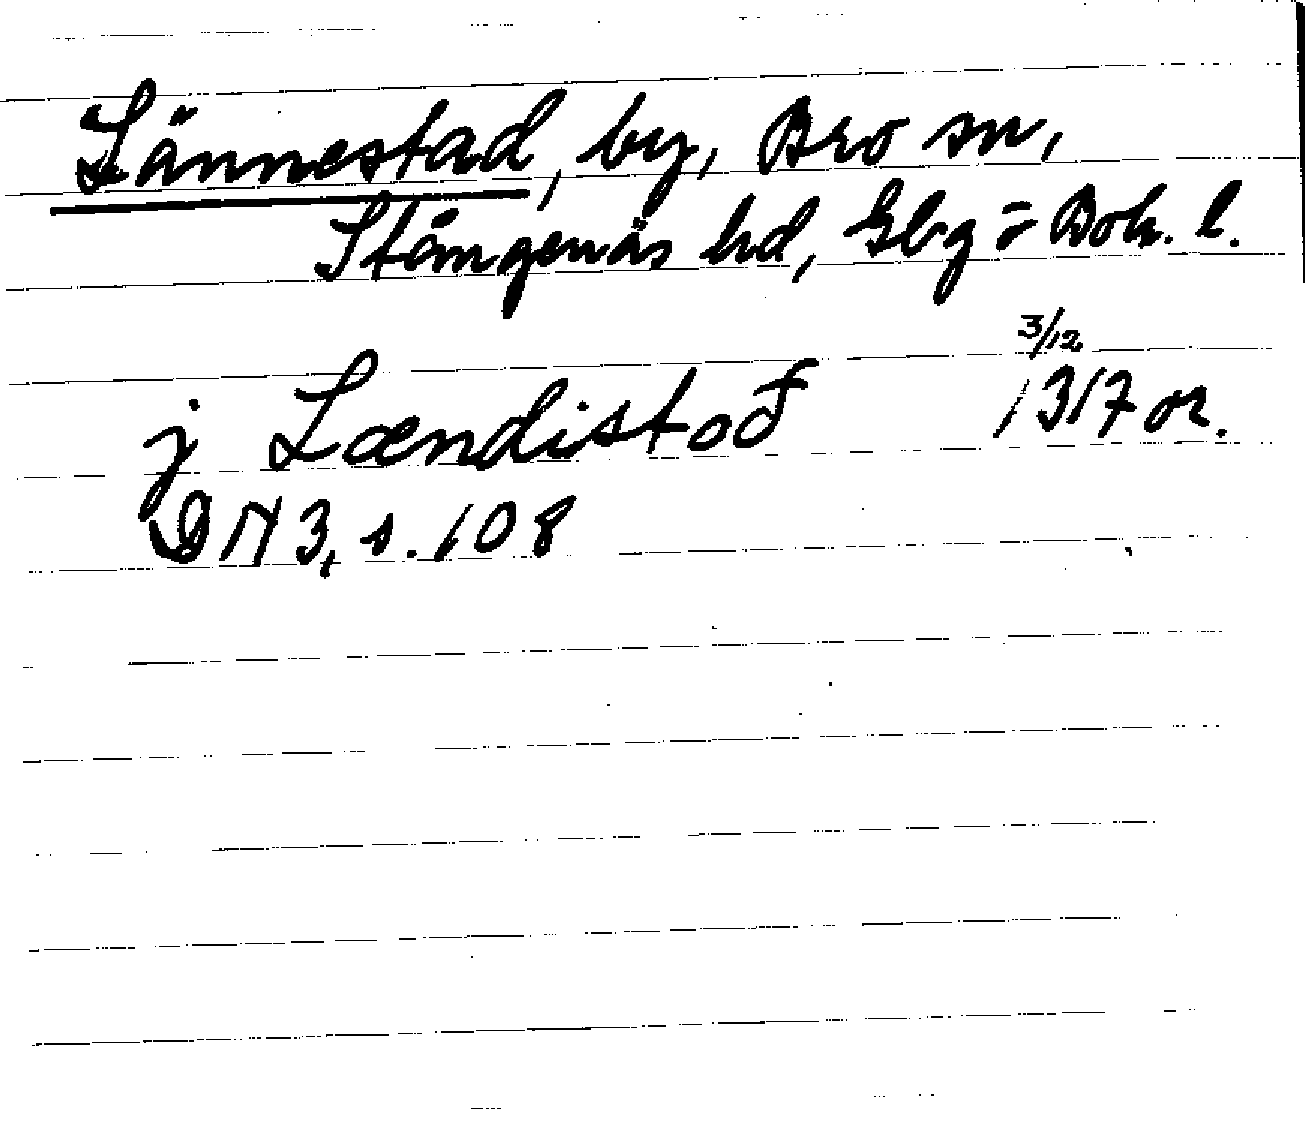 Lännestad, by, Bro sn,
Stångenäs hd, Gbg = Boh. l.
3/12
j Lændistoð 1317 or.
DN 3, s. 108